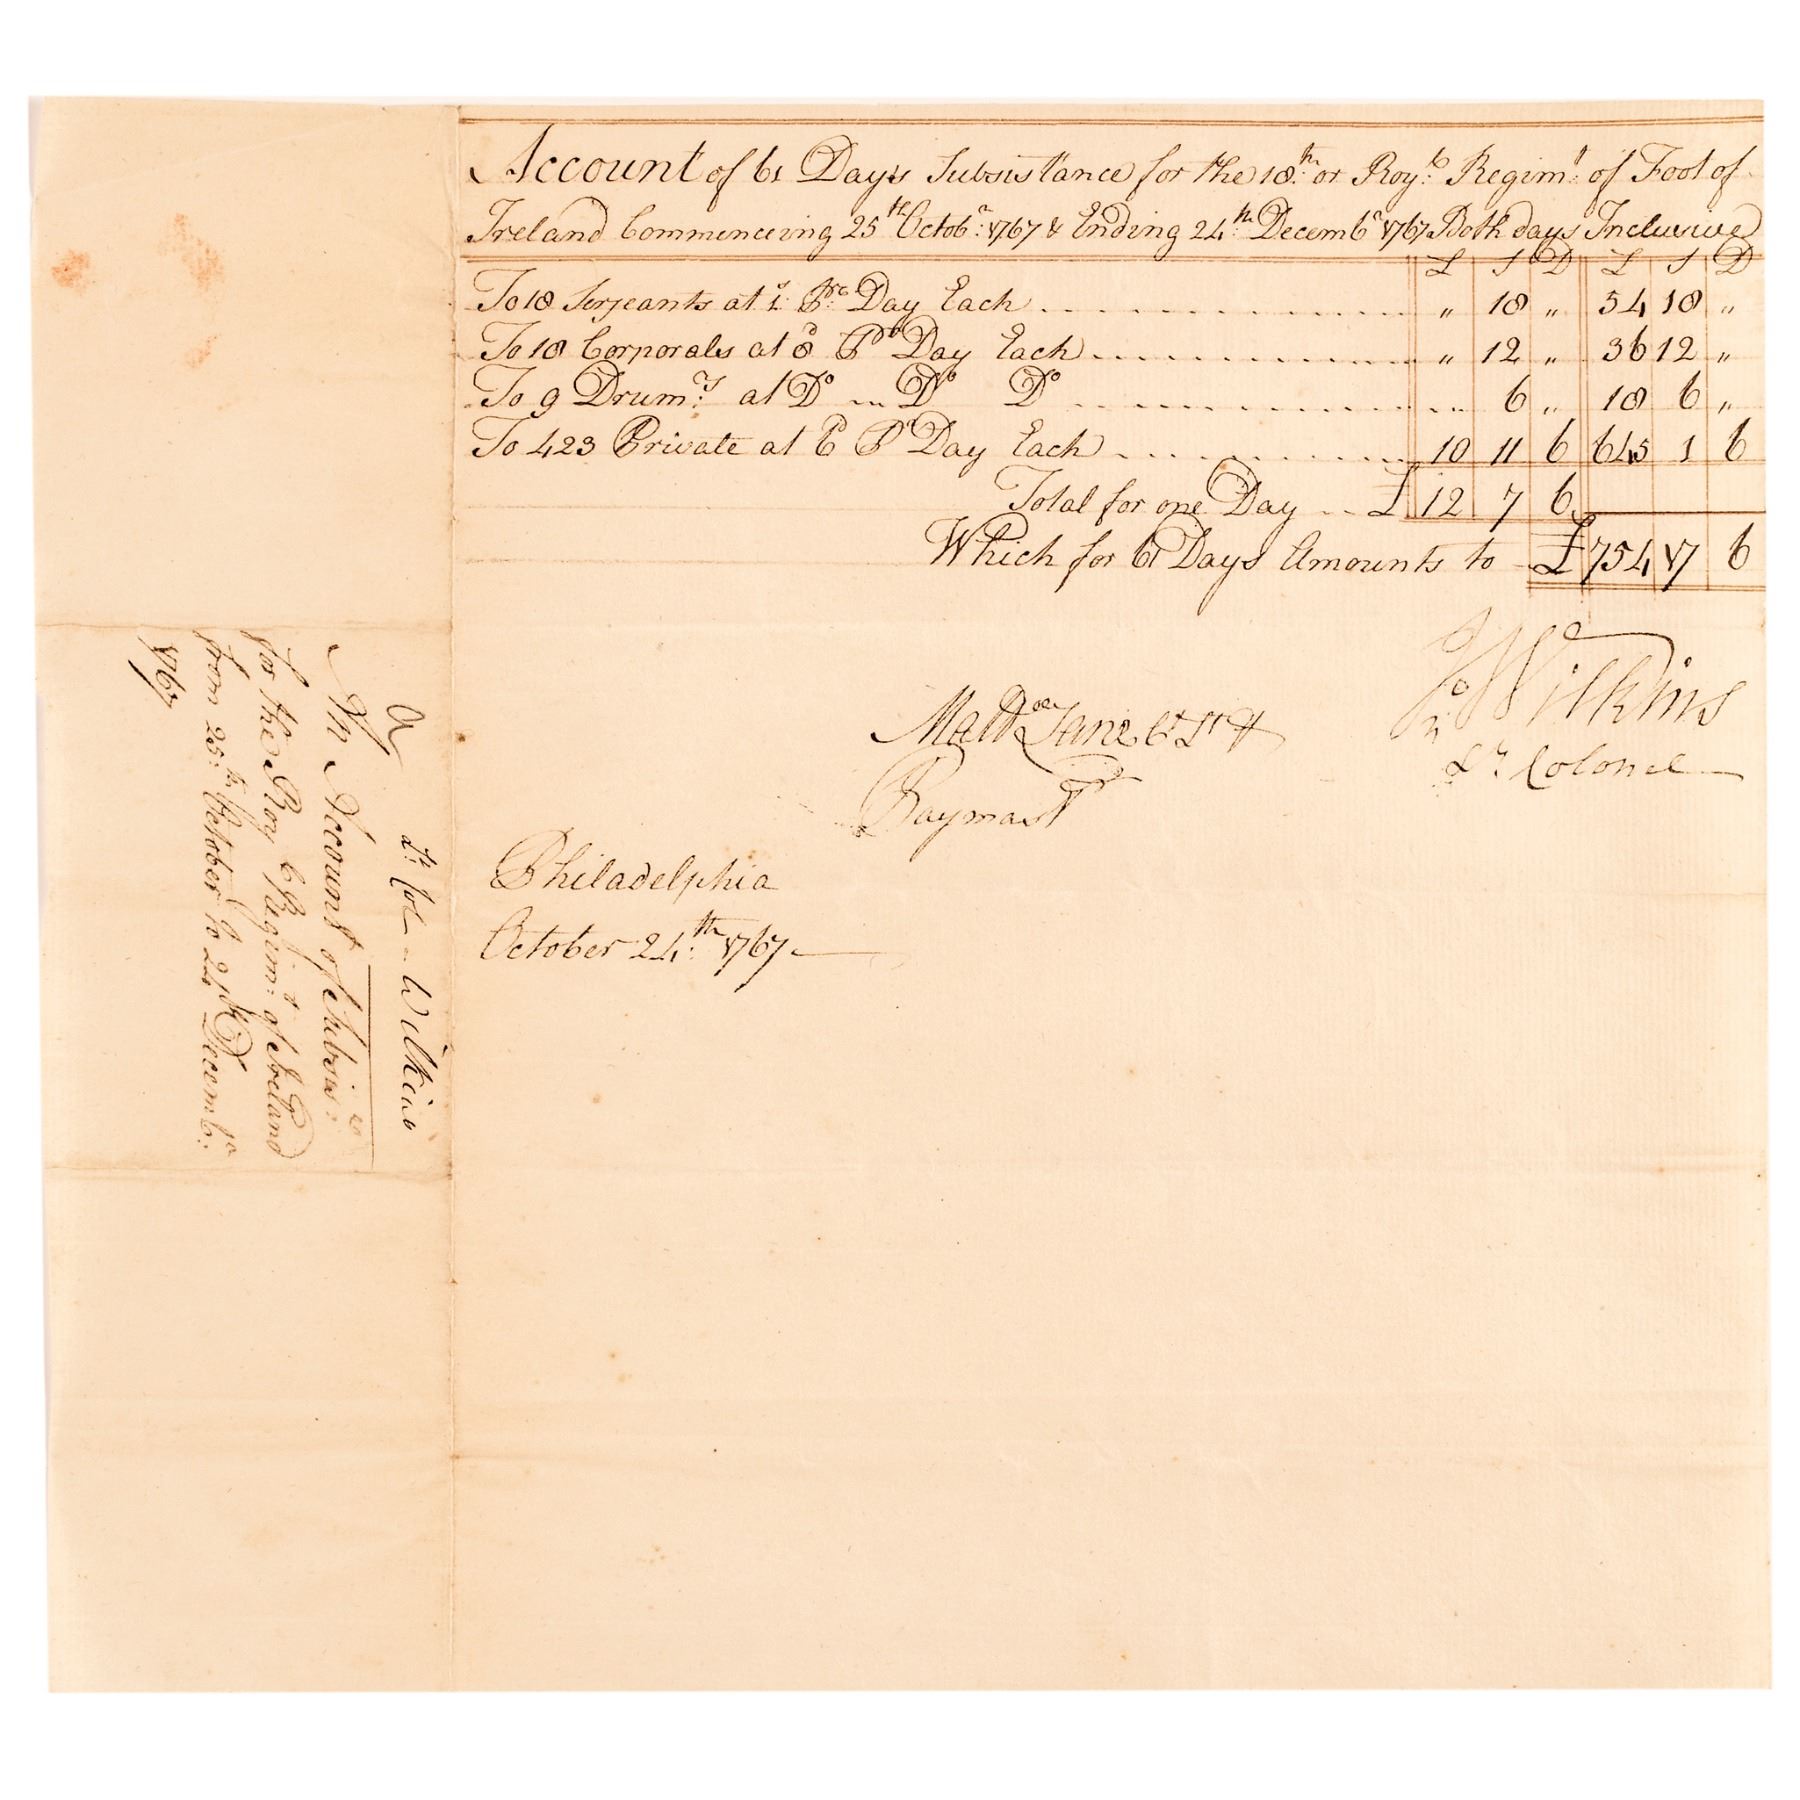 Account of 61 Days Subsistance for the 18th: or Roy:l Regim:t of Foot of
Ireland Commenceing 25th Octob:r 1767 & Ending 24:th Decemb:r 1767 Both days Inclusive
£ S D £ S D
To 18 Serjeants at 1s: Pr: Day Each „ 18 „ 54 18 „
To 18 Corporals at 8d Pr Day Each „ 12 „ 36 12 „
To 9 Drum:rs at Do Do Do „ 6 „ 18 6 „
To 423 Private at 6d Pr Day Each 10 11 6 645 1 6
Total for one Day £ 12 7 6
Which for 61 Days Amounts to £ 754 17 6
Jno Wilkins
Lt. Colonel
Matt Lane Ct Lt &
Paymastr
Philadelphia
October 24:th 1767
Lt: Col Wilkins
An Account of Subsis:ce
for the Roy:l Regim:t of Ireland
from 25:th October to 24th Decemb:r
1767